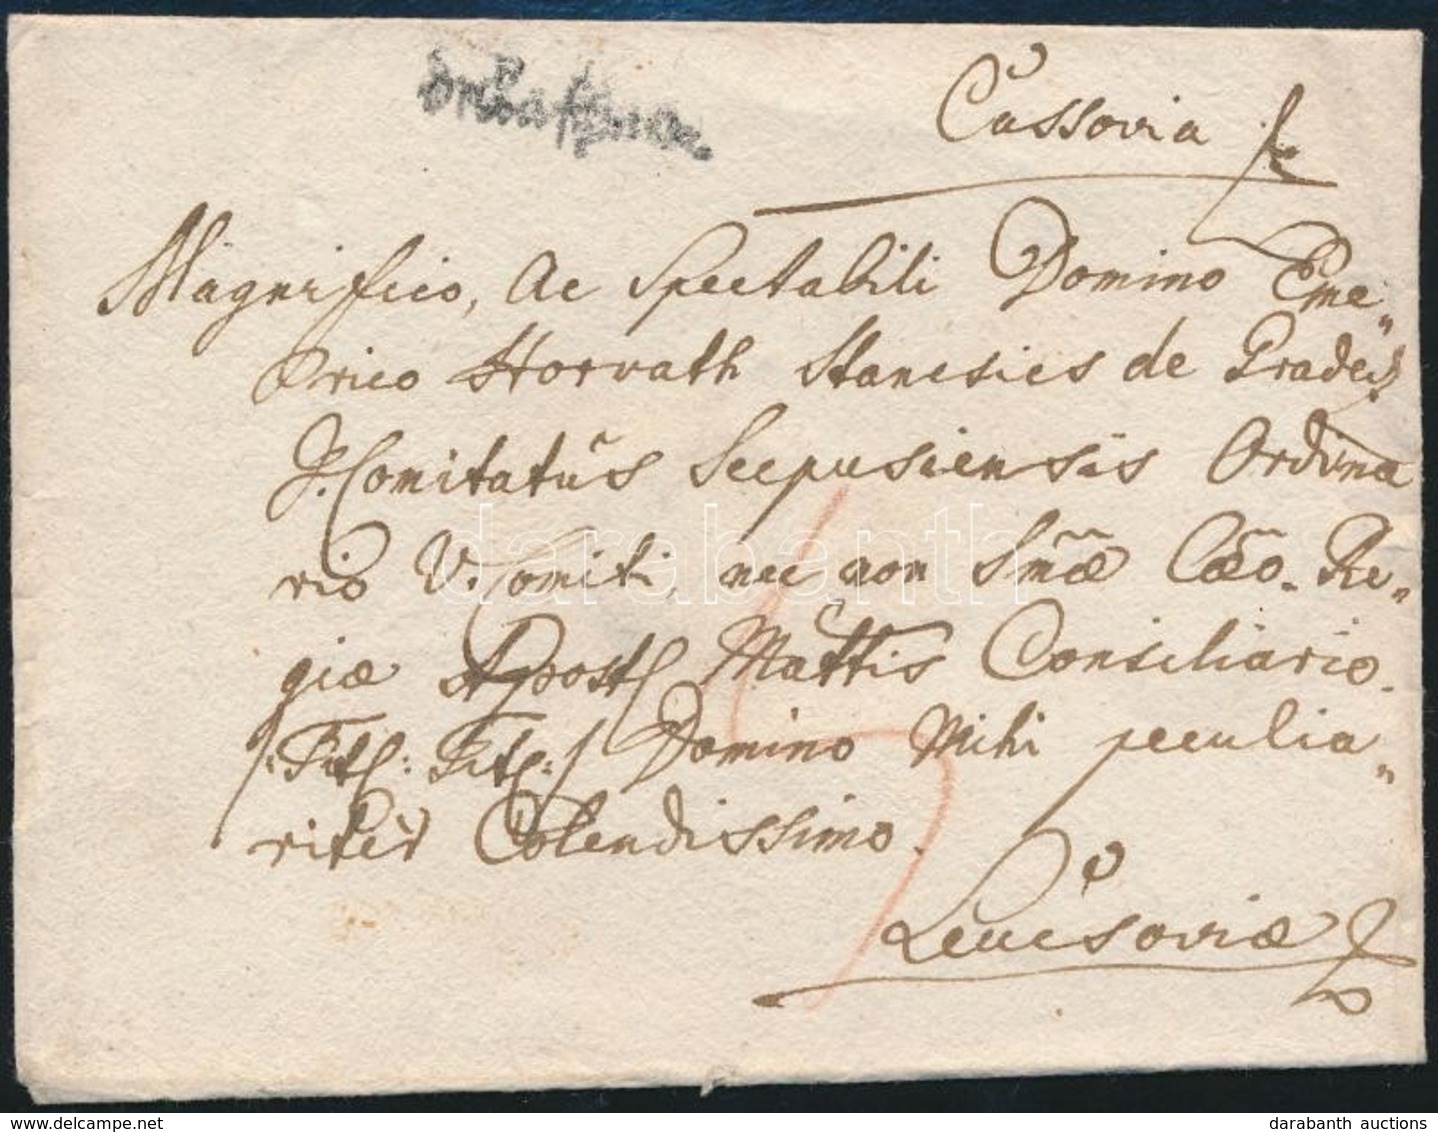 Cassovia
Magnifico, ac Spectabili Domino Eme„
rico Horvath Stancsics de Gradecz
I. Comitatûs Scepusiensis Ordina
rio V. Comiti, nec non Smãe Caeõ. Re„
giae Apostl Mattis Consiliario.
/: Titl: Titl: / Domino Mihi peculia„
riter Colendissimo.
Leucsoviae
darabanth
delcampe.net
darabanth auctions